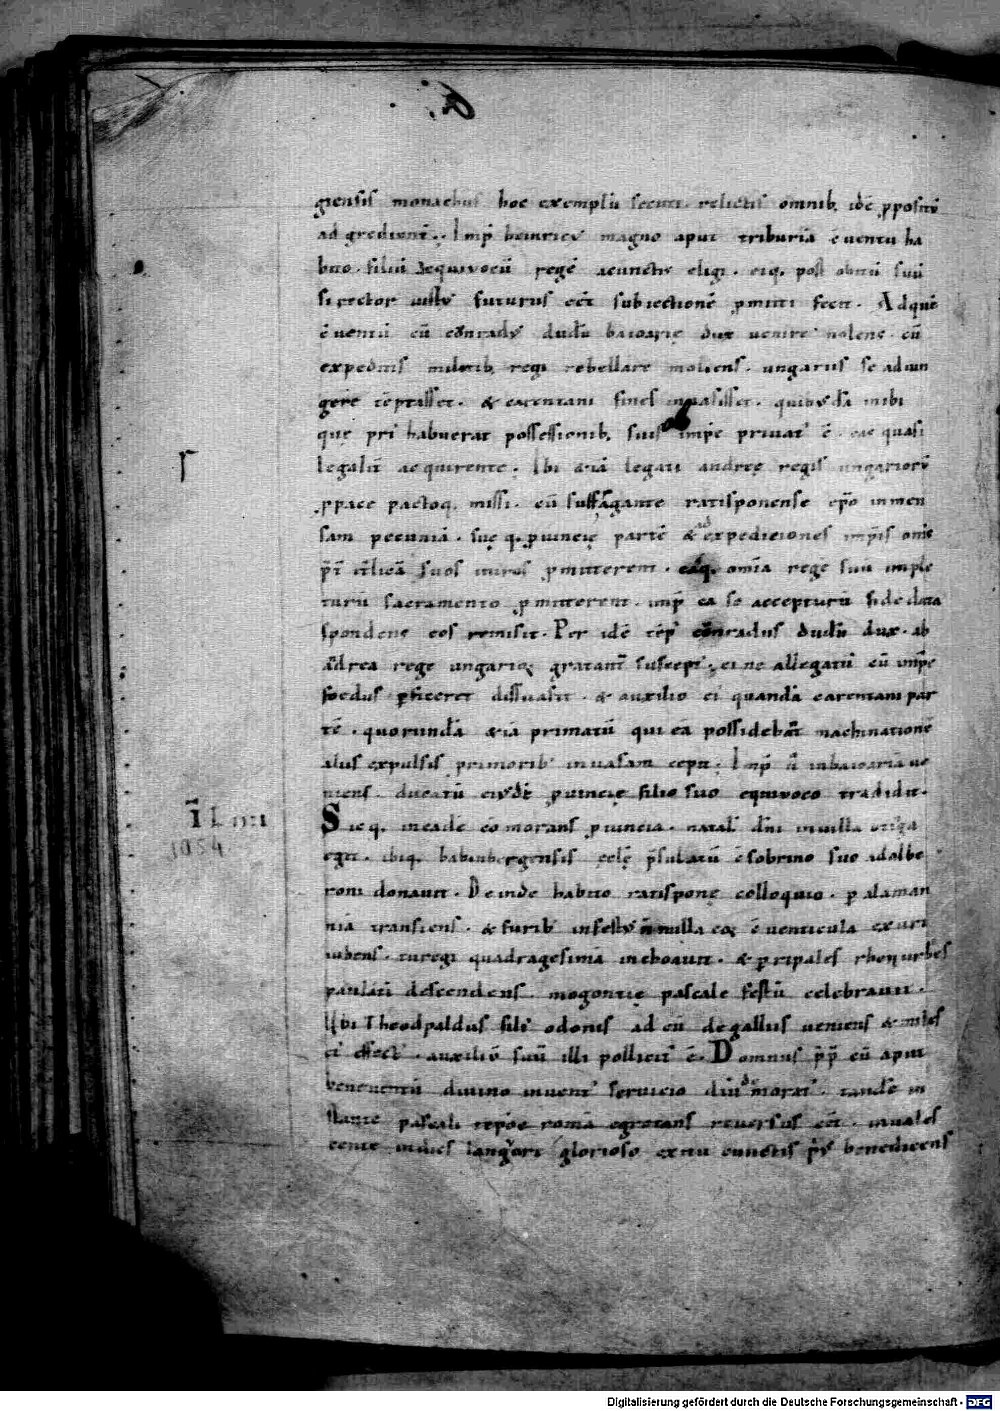 giensis monachus hoc exemplū secuti. relictis omnib; idē p̱positū
adgrediunt̄. Imp̄ heinric᷒ magno aput triburiā cventu ha
bito. filiū ęequivocū regē a cunctis eligi. eiq; post obitū suū
si rector iust᷒ futurus eēt subiectionē p̱mitti fecit. Ad quē
cventū cū cōnrad᷒ dudū baioarię dux venire nolens. cū
expeditis militib; regi rebellare moliens. ungariis se adiun
gere tēptasset. & carentani fines invasisset. quibusdā inibi
que pri᷒ habuerat possessionib; suis ab imp̄r privat᷒ ē. eas quasi
legalit̄ acquirente. Ibi &iā legati andreę regis ungariorū
p̱ pace pactoq; missi. cū suffragante ratisponense ep̄o inmen
sam pecuniā. suęq; p̱vincię partē & ad expediciones imp̄is omēs
p̄t̄ italicā suos ituros p̱mitterent. eaq; omīa regē suū imple
turū sacramento p̱mitterent. imp̄ ea se accepturū fide data
spondens eos remisit. Per idē tēp᷒ cōnradus dudū dux. ab
andrea rege ungarioꝝ gratant̄ suscept᷒. ei ne allegatū cū imp̄r̄e
foedus ꝑficeret dissuasit. & auxilio ei᷒ quandā carentani par
tē. quorundā &iā primatū qui eā possidebāt machinatione
aliis expulsis priorib᷒ invasam cepit. Imp̄ ū in baioariā ve
niens. ducatū ei᷒dē p̱vincię filio suo equivoco tradidit.
ī l iiii
1054
Sicq; in eadē eo morans p̱vincia. natal᷒ dn̄i in villa otinga
egit. ibiq; babinbergensis ęcclę p̄sulatū csobrino suo adalbe
roni donavit. Deinde habito ratisponę colloquio. p̱ alaman
niā transiens. & furib᷒ infest᷒ nōnulla eoꝝ cventicula exuri
iubens. turegi quadragesimā inchoavit. & p̱ ripales rheni urbes
paulatī descendens. mogontię pascale festū celebravit.
Ubi Theodpaldus fili᷒ odonis ad eū de gallus veniens & miles
ei᷒ effect᷒. auxiliū suū illi pollicit᷒ ē. Domnus p̄p̄ cū aput
beneventū divino invent᷒ servicio diu demorat᷒. tandē in
stante pascali tēpore romā egrotans reversus eēt. invales
cente indies languore glorioso exitu cunctis p̄us benedicens